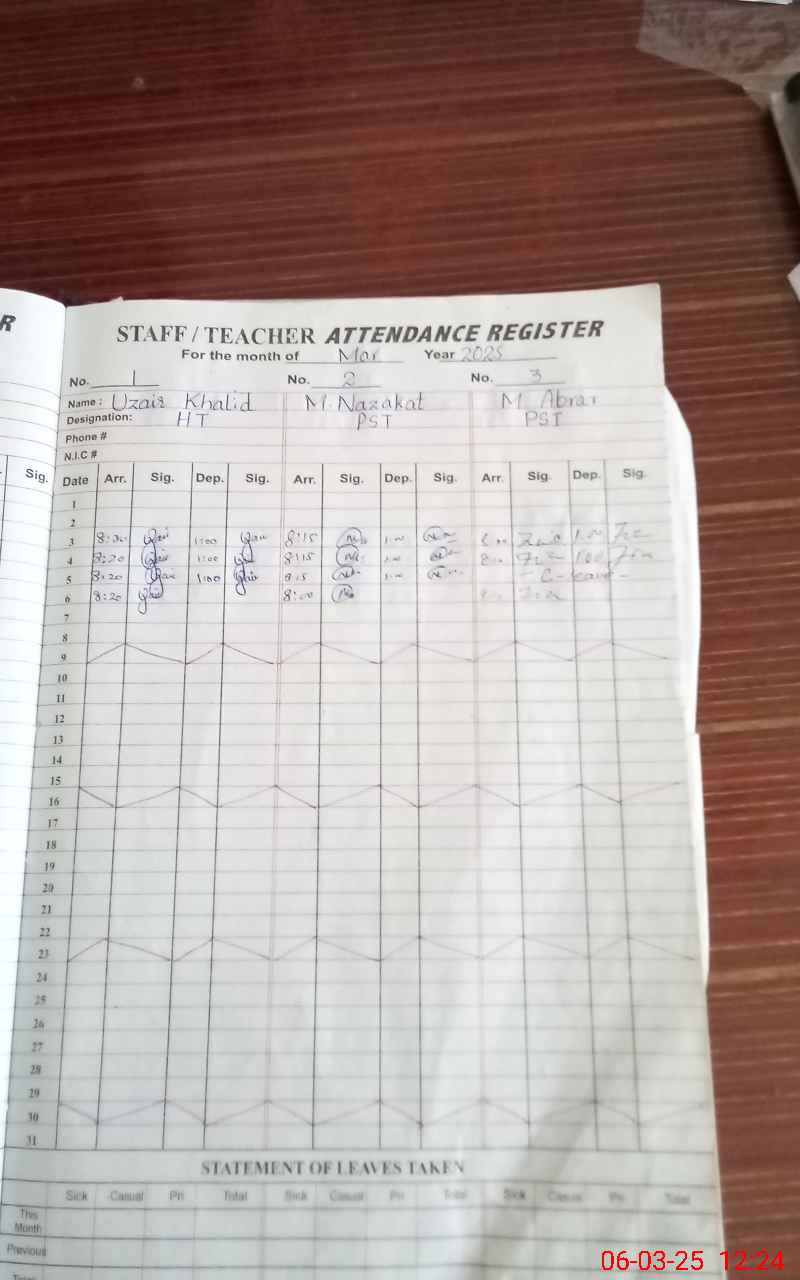 R
STAFF / TEACHER ATTENDANCE REGISTER
For the month of Mar Year 2025
No. 1 No. 2 No. 3
Name : Uzair Khalid M. Nazakat M. Abrar
Designation: HT PST PST
Phone #
N.I.C #
Sig. Date Arr. Sig. Dep. Sig. Arr. Sig. Dep. Sig. Arr. Sig. Dep. Sig.
1
2
3 1:00 8:15
4 8:20 1:00 8:15
5 8:20 1:00 8:15
6 8:20 8:00
7
8
9
10
11
12
13
14
15
16
17
18
19
20
21
22
23
24
25
26
27
28
29
30
31
STATEMENT OF LEAVES TAKEN
Sick Casual Pri Total Sick Casual Pri Total Sick Casual Pri Total
This
Month
Previous
Total
06-03-25 12:24